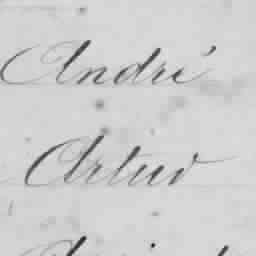 André
Artur